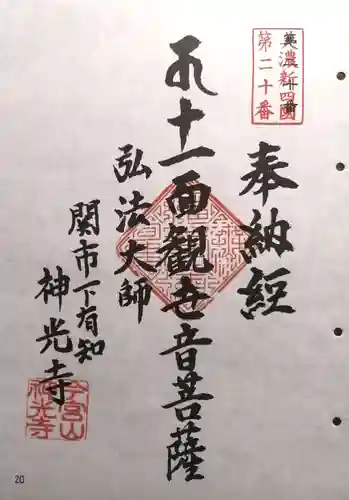 美濃新四国
第二十番
奉納経
十一面観世音菩薩
弘法大師
関市下有知
神光寺
今宮山
神光寺
20